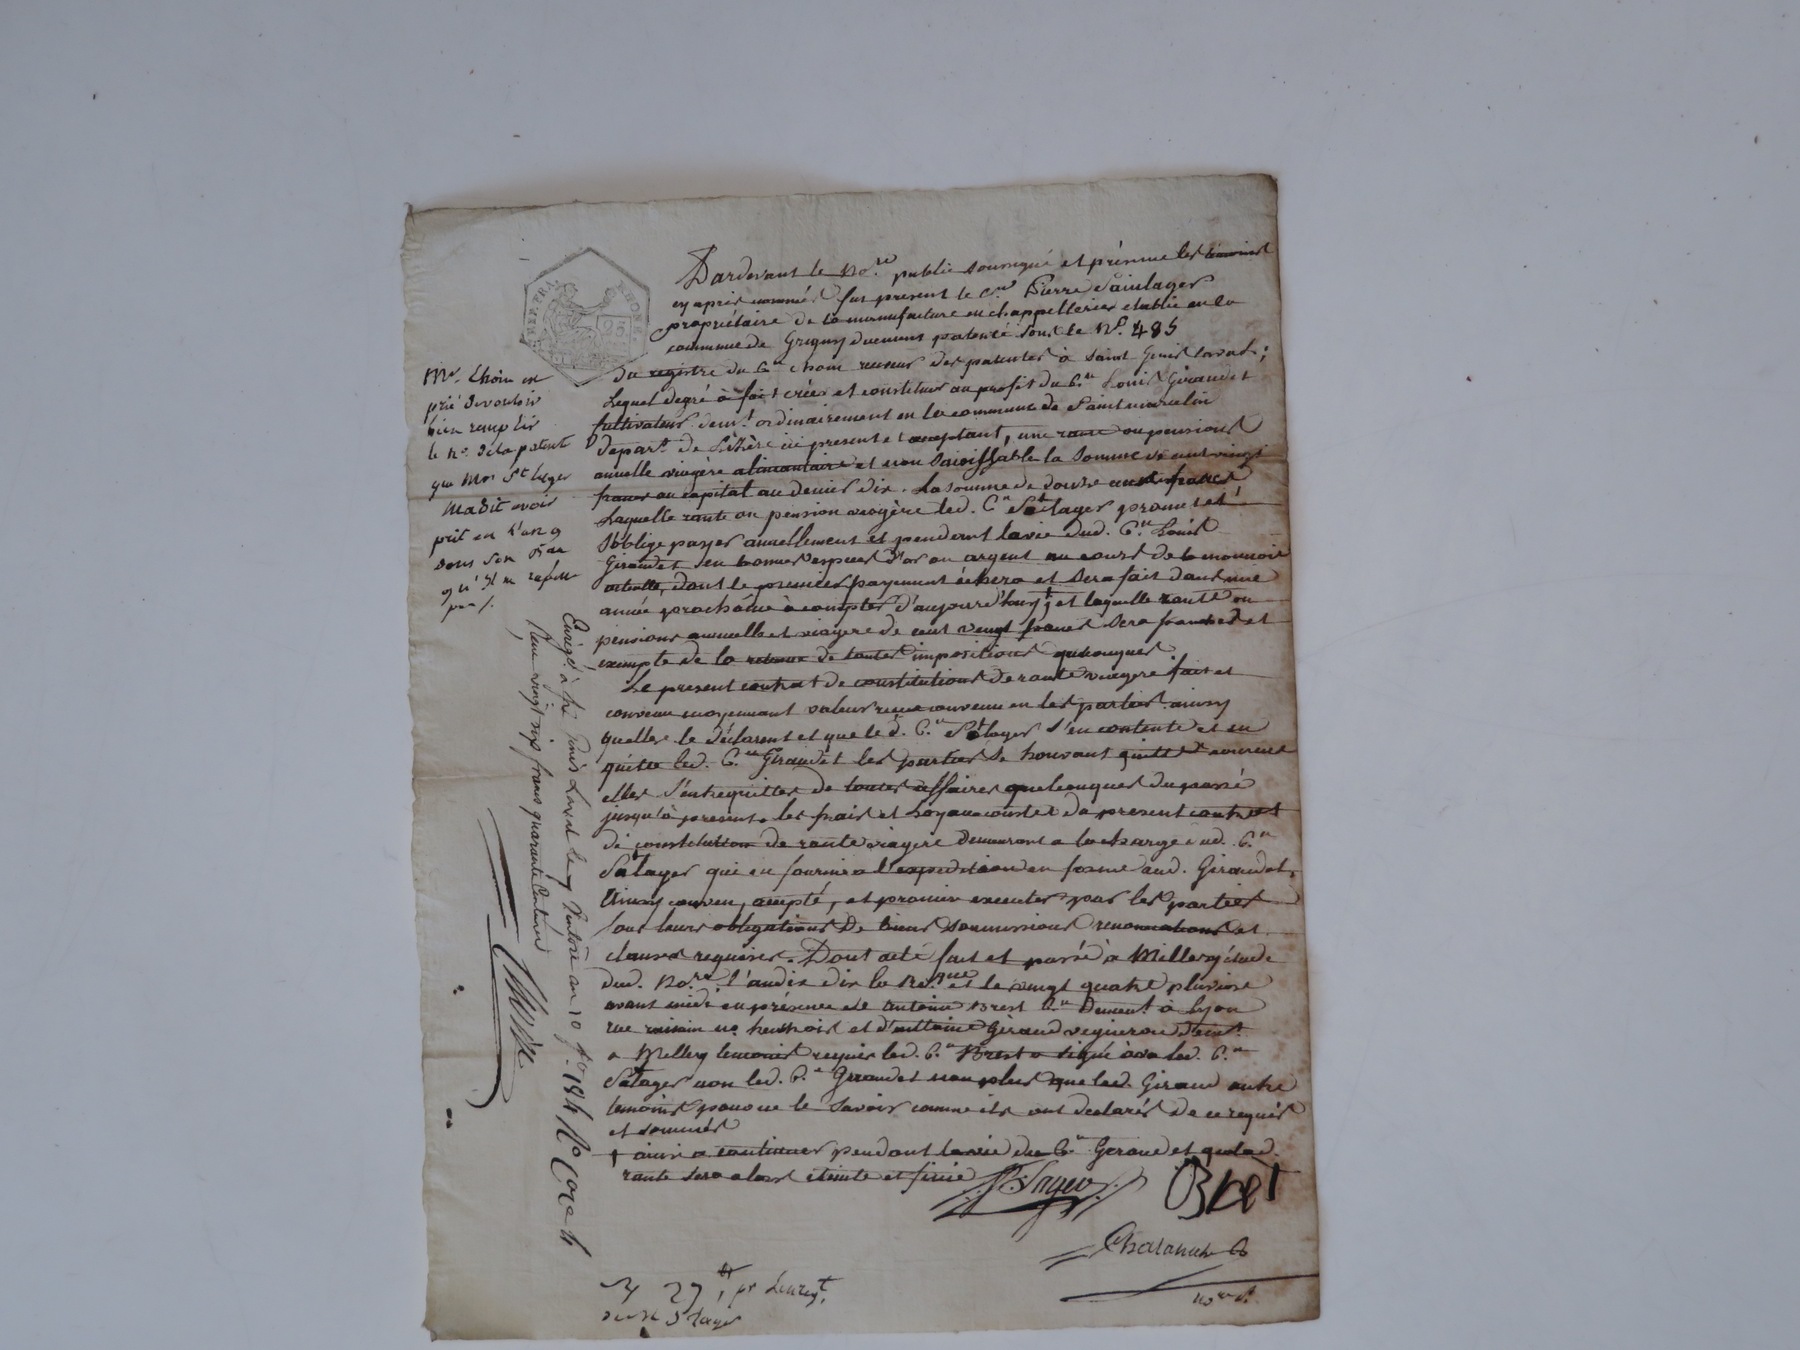 Pardevant le No.re public soussigné et présence les témoins
cy après nommés fut present le C.en Pierre Saintlager
propriétaire de la manufacture en chappellerier etablie en la
commune de Grigny duement patenté sous le N.o 485
du registre du C.en Choin receveur des patentes à Saint Genis Laval;
Lequel degré à fait créer et constituer au profit du C.en Louis Giraudet
cultivateur demt. ordinairement en la commune de Saint marcelin
Depart. de L'isère ici present et acceptant, une rante ou pension
annuelle viagère alimantaire et non saisissable la somme de cent vingt
francs au capital au denier dix. La somme de douze cent francs
Laquelle rante ou pension viagère led. C.en St lager promet et
s'oblige payer annuellement et pendant la vie dud. C.en Louis
Giraudet en bonnes espèces d'or ou argent au cours de la monnoie
actuelle, dont le premier payement échera et sera fait dans une
année prochaine à compter d'aujourd'huy † et laquelle rante ou
pension annuelle et viagere de cent vingt francs sera franche et
exempte de la retenue de toutes impositions quelconques
Le present contrat de constitution de rante viagere fait et
convenu moyennant valeur reçue convenue en les parties ainsy
quelles le déclarent et que led. C.en St lager s'en contente et en
quitte led. C.en Giraudet les parties se trouvant quittes
elles s'entrequittes de toutes affaires quelconques du passé
jusqu'à present. les frais et loyaux couste du present contrat
de constitution de rante viagere demeurant a la charge dud. C.en
St lager qui en fournira l'expedition en forme aud. Giraudet.
Ainsy convenu, accepté, et promis executer par les parties
sous leurs obligations de biens soumissions renonciations et
clauses requises. Dont acte fait et passé à Millery étude
dud. No.re l'andix dix la Re.que et le vingt quatre pluviose
avant midi en présence de Antoine Brest C.en Demeut. à Lyon
rue no. trentrois et d'antoine Giraud vigneron demt.
a Millery temoins requis led. C.en Brest a signé avec led. C.en
St lager non led. C.en Giraudet non plus que led. Giraud autre
temoins pour ne le savoir comme ils ont declarés de ce requis
et sommés
† ainsi a continuer pendant la vie du C.en Giraudet qu'alad.
rante sera alors éteinte et finie
St Lager Brest
No.re
Mr. Choin est
prié de vouloir
bien remplir
le no. de la patente
que Mr St lager
m'a dit avoir
prit en l'an 9
dans son Bau
qu'il ne rapelle
pas /.
Enrégt. à St Genis Laval le 7 Ventose an 10 fo. 184 Ro Case 4
Reçu vingt six francs quarante Centimes
27 pr Lenregt.
de Mr St lager
RHONE
25